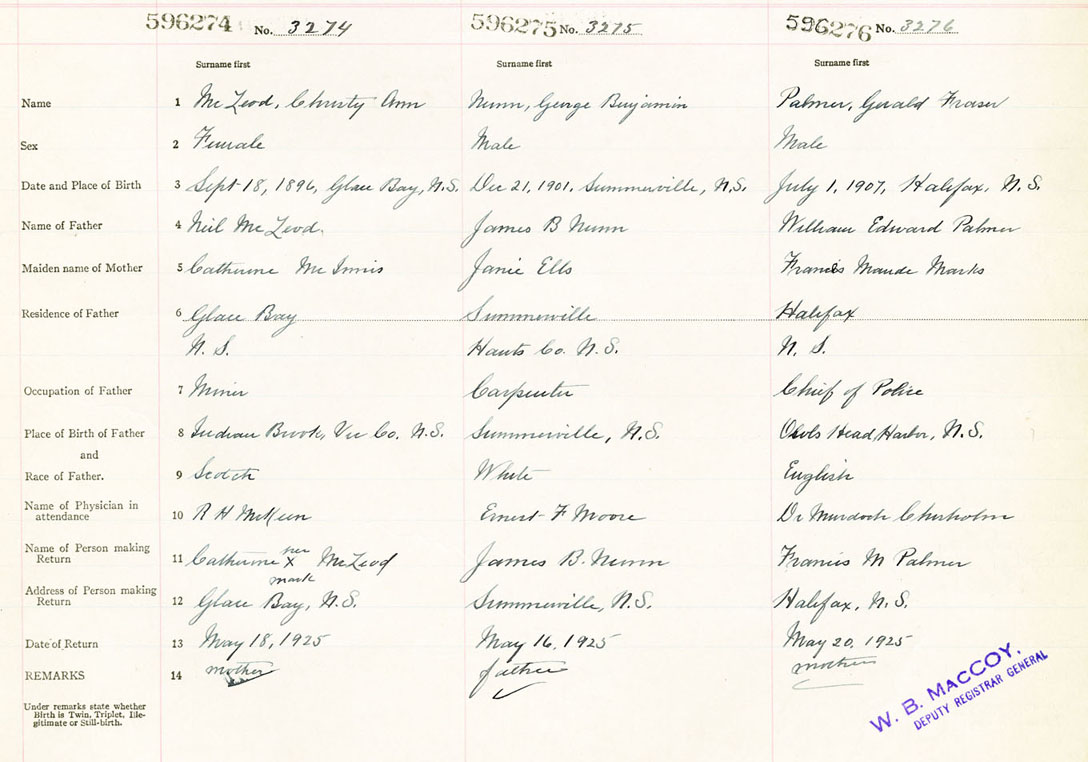 596274 No. 3274 596275 No. 3275 596276 No. 3276
Surname first Surname first Surname first
Name 1 McLeod, Christy Ann Nunn, George Benjamin Palmer, Gerald Fraser
Sex 2 Female Male Male
Date and Place of Birth 3 Sept 18, 1896, Glace Bay, N.S. Dec 21, 1901, Summerville, N.S. July 1, 1907, Halifax, N.S.
Name of Father 4 Neil McLeod. James B Nunn William Edward Palmer
Maiden name of Mother 5 Catherine McInnis Janie Ells Francis Maude Marks
Residence of Father 6 Glace Bay Summerville Halifax
N. S. Hants Co. N.S. N. S.
Occupation of Father 7 Miner Carpenter Chief of Police
Place of Birth of Father 8 Indian Brook, Vic Co. N.S. Summerville, N.S. Owls Head Harbor, N.S.
and
Race of Father. 9 Scotch White English
Name of Physician in
attendance 10 R H McKeen Ernest F Moore Dr Murdoch Chisholm
Name of Person making
Return 11 Catherine her x mark McLeod James B. Nunn Francis M Palmer
Address of Person making
Return 12 Glace Bay, N.S. Summerville, N.S. Halifax, N.S.
Date of Return 13 May 18, 1925 May 16, 1925 May 20, 1925
REMARKS 14 mother father mother
Under remarks state whether
Birth is Twin, Triplet, Ille-
gitimate or Still-birth.
W. B. MACCOY,
DEPUTY REGISTRAR GENERAL